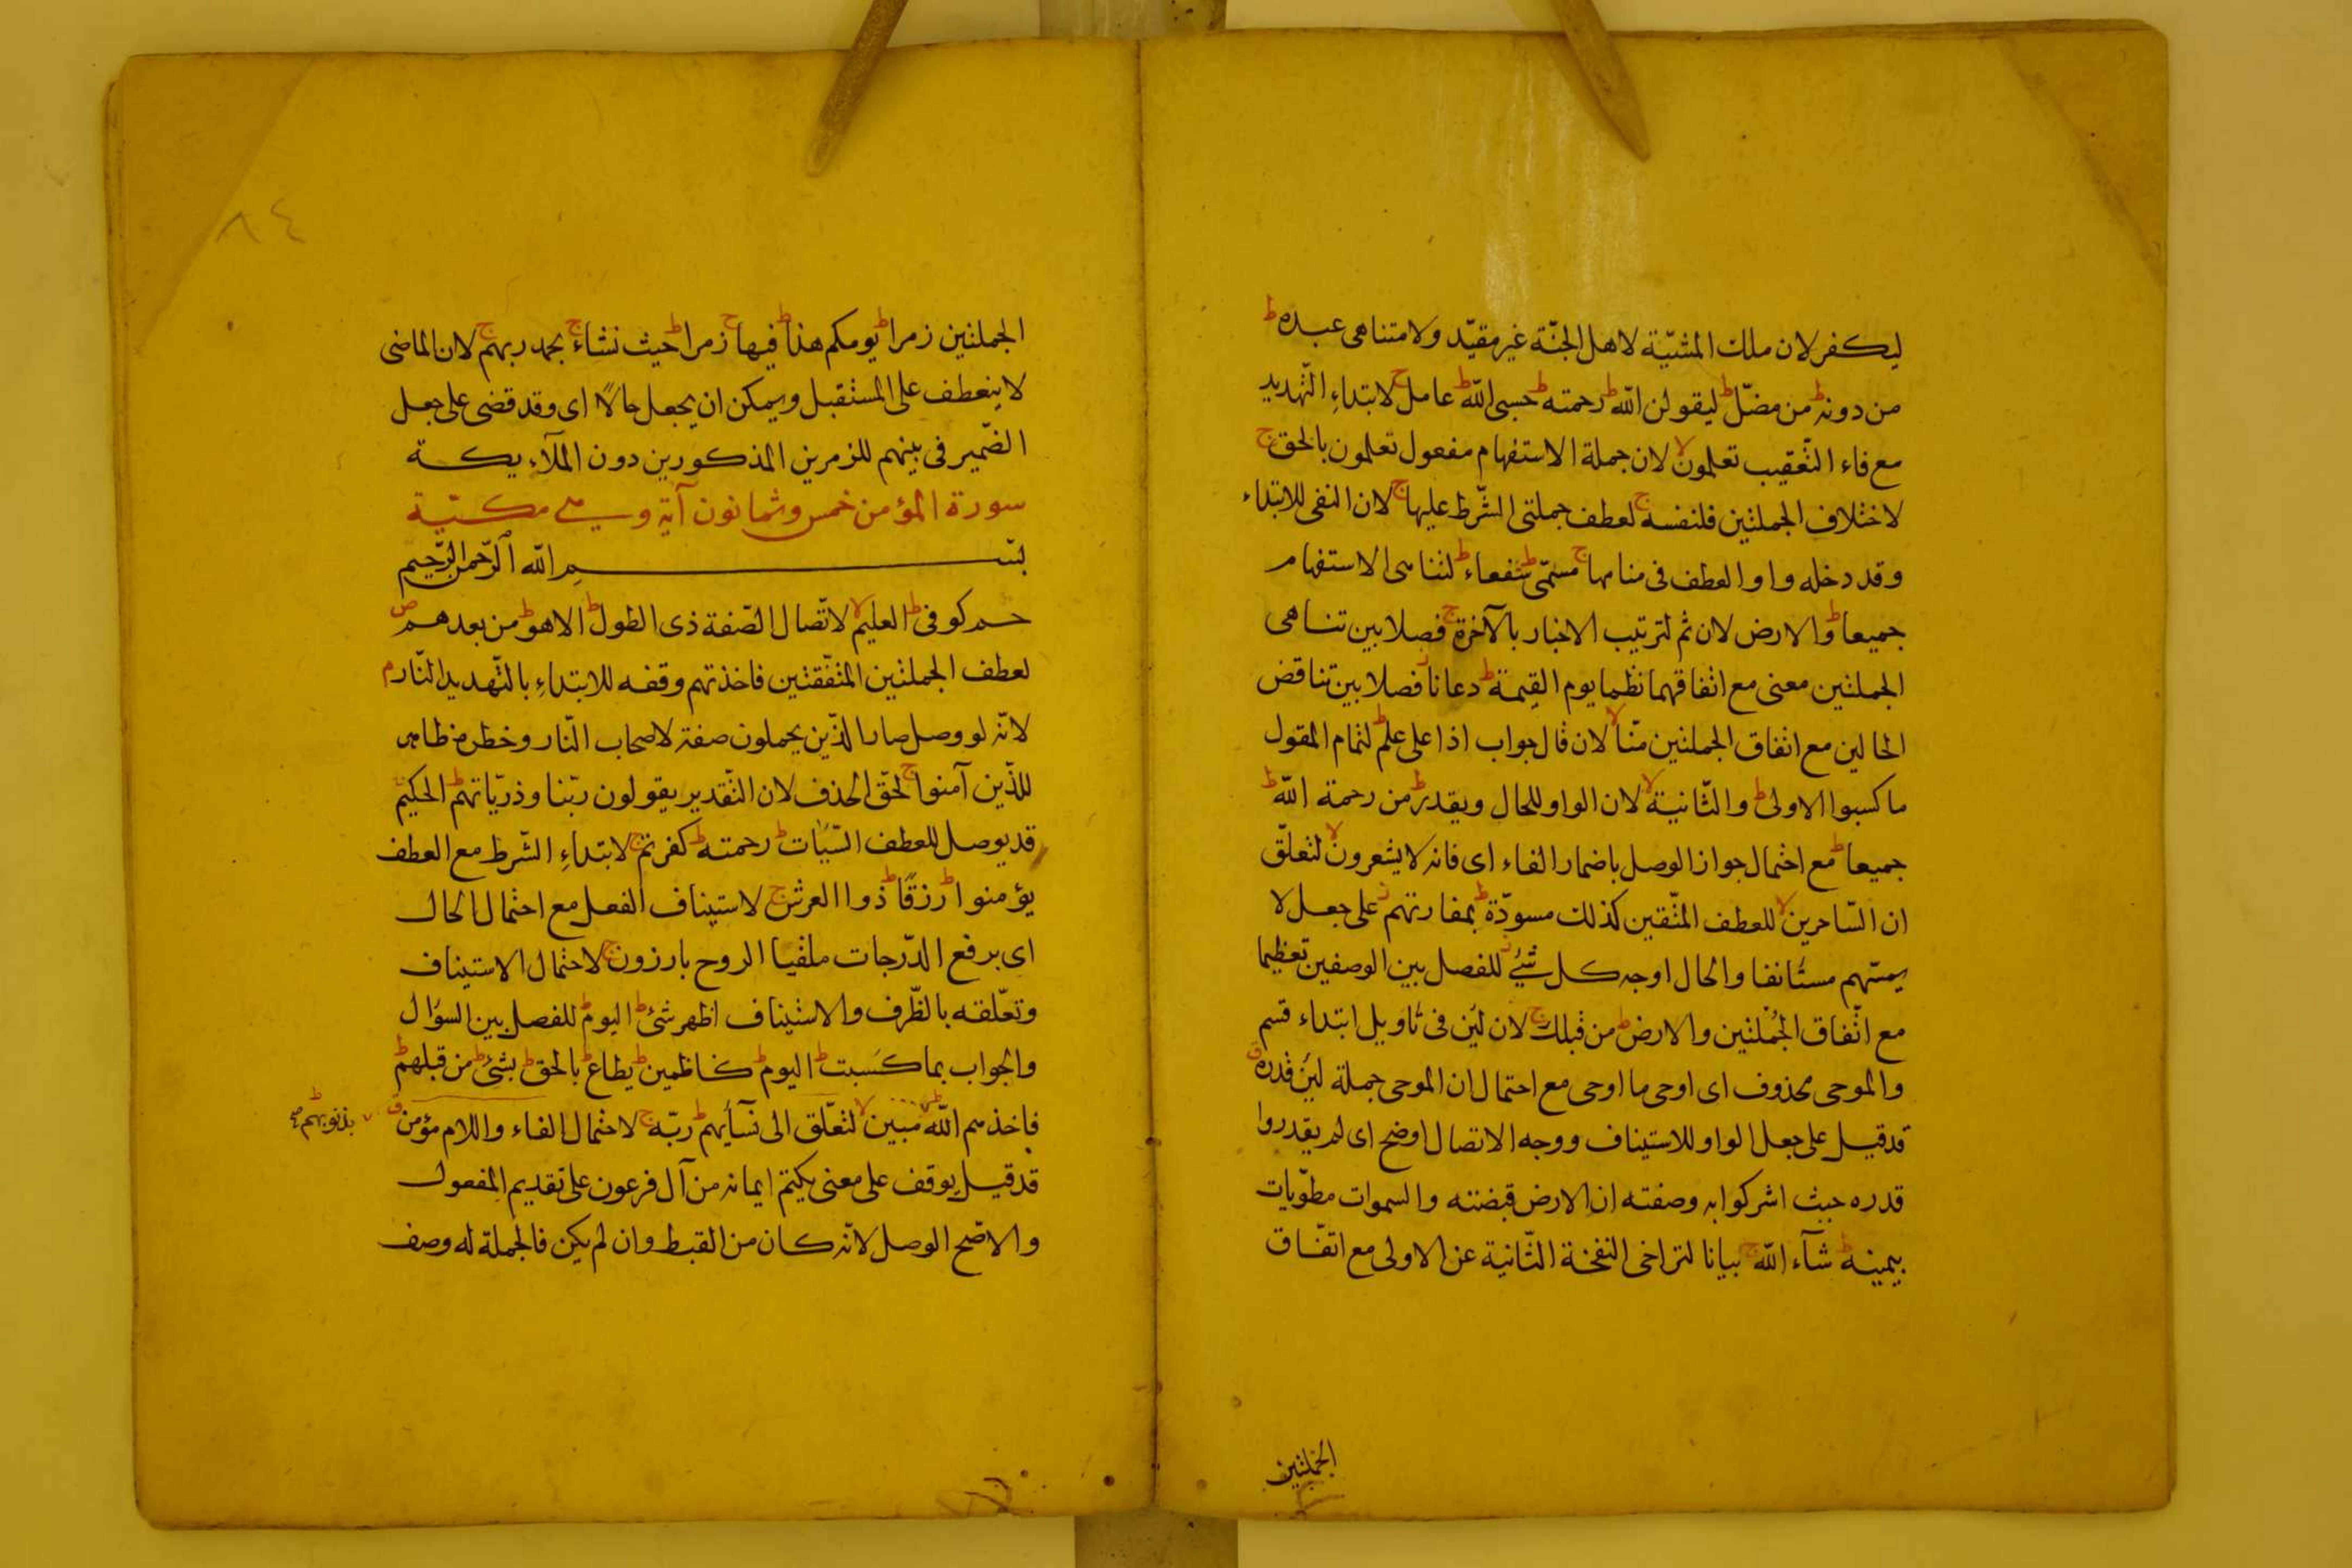 ليكفر لان ملك المشيّة لاهل الجنّة غير مقيّد ولا متناهى عبده ط
من دونه ط من مضلّ ط ليقولن الله ط رحمته ط حسبى الله ط عامل ج لابتداء التّهديد
مع فاء التّعقيب تعلمون لا لان جملة الاستفهام مفعول تعلمون بالحق ج
لاختلاف الجملتين فلنفسه ج لعطف جملتى الشّرط عليها ج لان النفى للابتداء
وقد دخله واو العطف فى منامها ج مسمّى ط شفعاء ط لتناهى الاستفهام
جميعا ط والارض لان ثم لترتيب الاخبار بالآخرة ج فصلا بين تناهى
الجملتين معنى مع اتفاقهما نظما يوم القيمة ط دعانا ز فصلا بين تناقض
الحالين مع اتفاق الجملتين منّا لا لان قال جواب اذا على علم ط لتمام المقول
ما كسبوا الاولى ط والثّانية لا لان الواو للحال ويقدر ط من رحمة الله ط
جميعا ط مع احتمال جواز الوصل باضمار الفاء اى فانه لا يشعرون لا لتعلّق
ان السّاخرين لا للعطف المتّقين كذلك مسودّة ط بمفازتهم ز على جعل لا
يمسّهم مستانفا والحال اوجه كل شئ ز للفصل بين الوصفين تعظيما
مع اتّفاق الجملتين والارض ط من قبلك ج لان لئن فى تاويل ابتداء قسم
والموحى محذوف اى اوحى ما اوحى مع احتمال ان الموحى جملة لئن قدره ق
قد قيل على جعل الواو للاستيناف ووجه الاتصال اوضح اى لم يقدروا
قدره حيث اشركوا به وصفته ان الارض قبضته والسموات مطويات
بيمينه ط شآء الله ج بيانا لتراخى النفخة الثّانية عن الاولى مع اتفّاق
الجملتين
٨٤
الجملتين زمرا ط يومكم هذا ط فيها ج زمرا ط حيث نشاء ج بحمد ربهم ج لان الماضى
لا ينعطف على المستقبل ويمكن ان يجعل حالا اى وقد قضى على جعل
الضّمير فى بينهم للزمرين المذكورين دون الملآء يكة
سورة المؤمن خمس وثمانون آية وهى مكيّة
بسم الله الرّحمن الرّحيم
حم كوفى ط العليم لا لاتّصال الصّفة ذى الطول ط الا هو ط من بعدهم ص
لعطف الجملتين المتّفقتين فاخذتهم وقفه للابتداء بالتّهديد النّار م
لانّه لو وصل صار الذّين يحملون صفة لاصحاب النّار وخطره ظاهر
للذّين آمنوا ج لحقّ الحذف لان التّقدير يقولون ربّنا وذريّاتهم ط الحكيم
قد يوصل للعطف السّيّات ط رحمته ط كفرتم ج لابتداء الشّرط مع العطف
يؤمنوا ط رزقًا ط ذوا العرش ج لاستيناف الفعل مع احتمال الحال
اى برفع الدّرجات ملقيا الروح بارزون ج لاحتمال الاستيناف
وتعّلقه بالظّرف والاستيناف اظهر شئ ط اليوم ط للفصل بين السؤال
والجواب بما كسبت ط اليوم ط كاظمين ط يطاع ط بالحق ط بشئ ط من قبلهم ط
فاخذهم الله ط مبين لا لتعّلق الى نسآئهم ط ربّه ج لاحتمال الفاء واللام مؤمن ق
بذنوبهم ط صح
قد قيل يوقف على معنى يكتم ايمانه من آل فرعون على تقديم المفعول
والاصّح الوصل لانّه كان من القبط وان لم يكن فالجملة له وصف